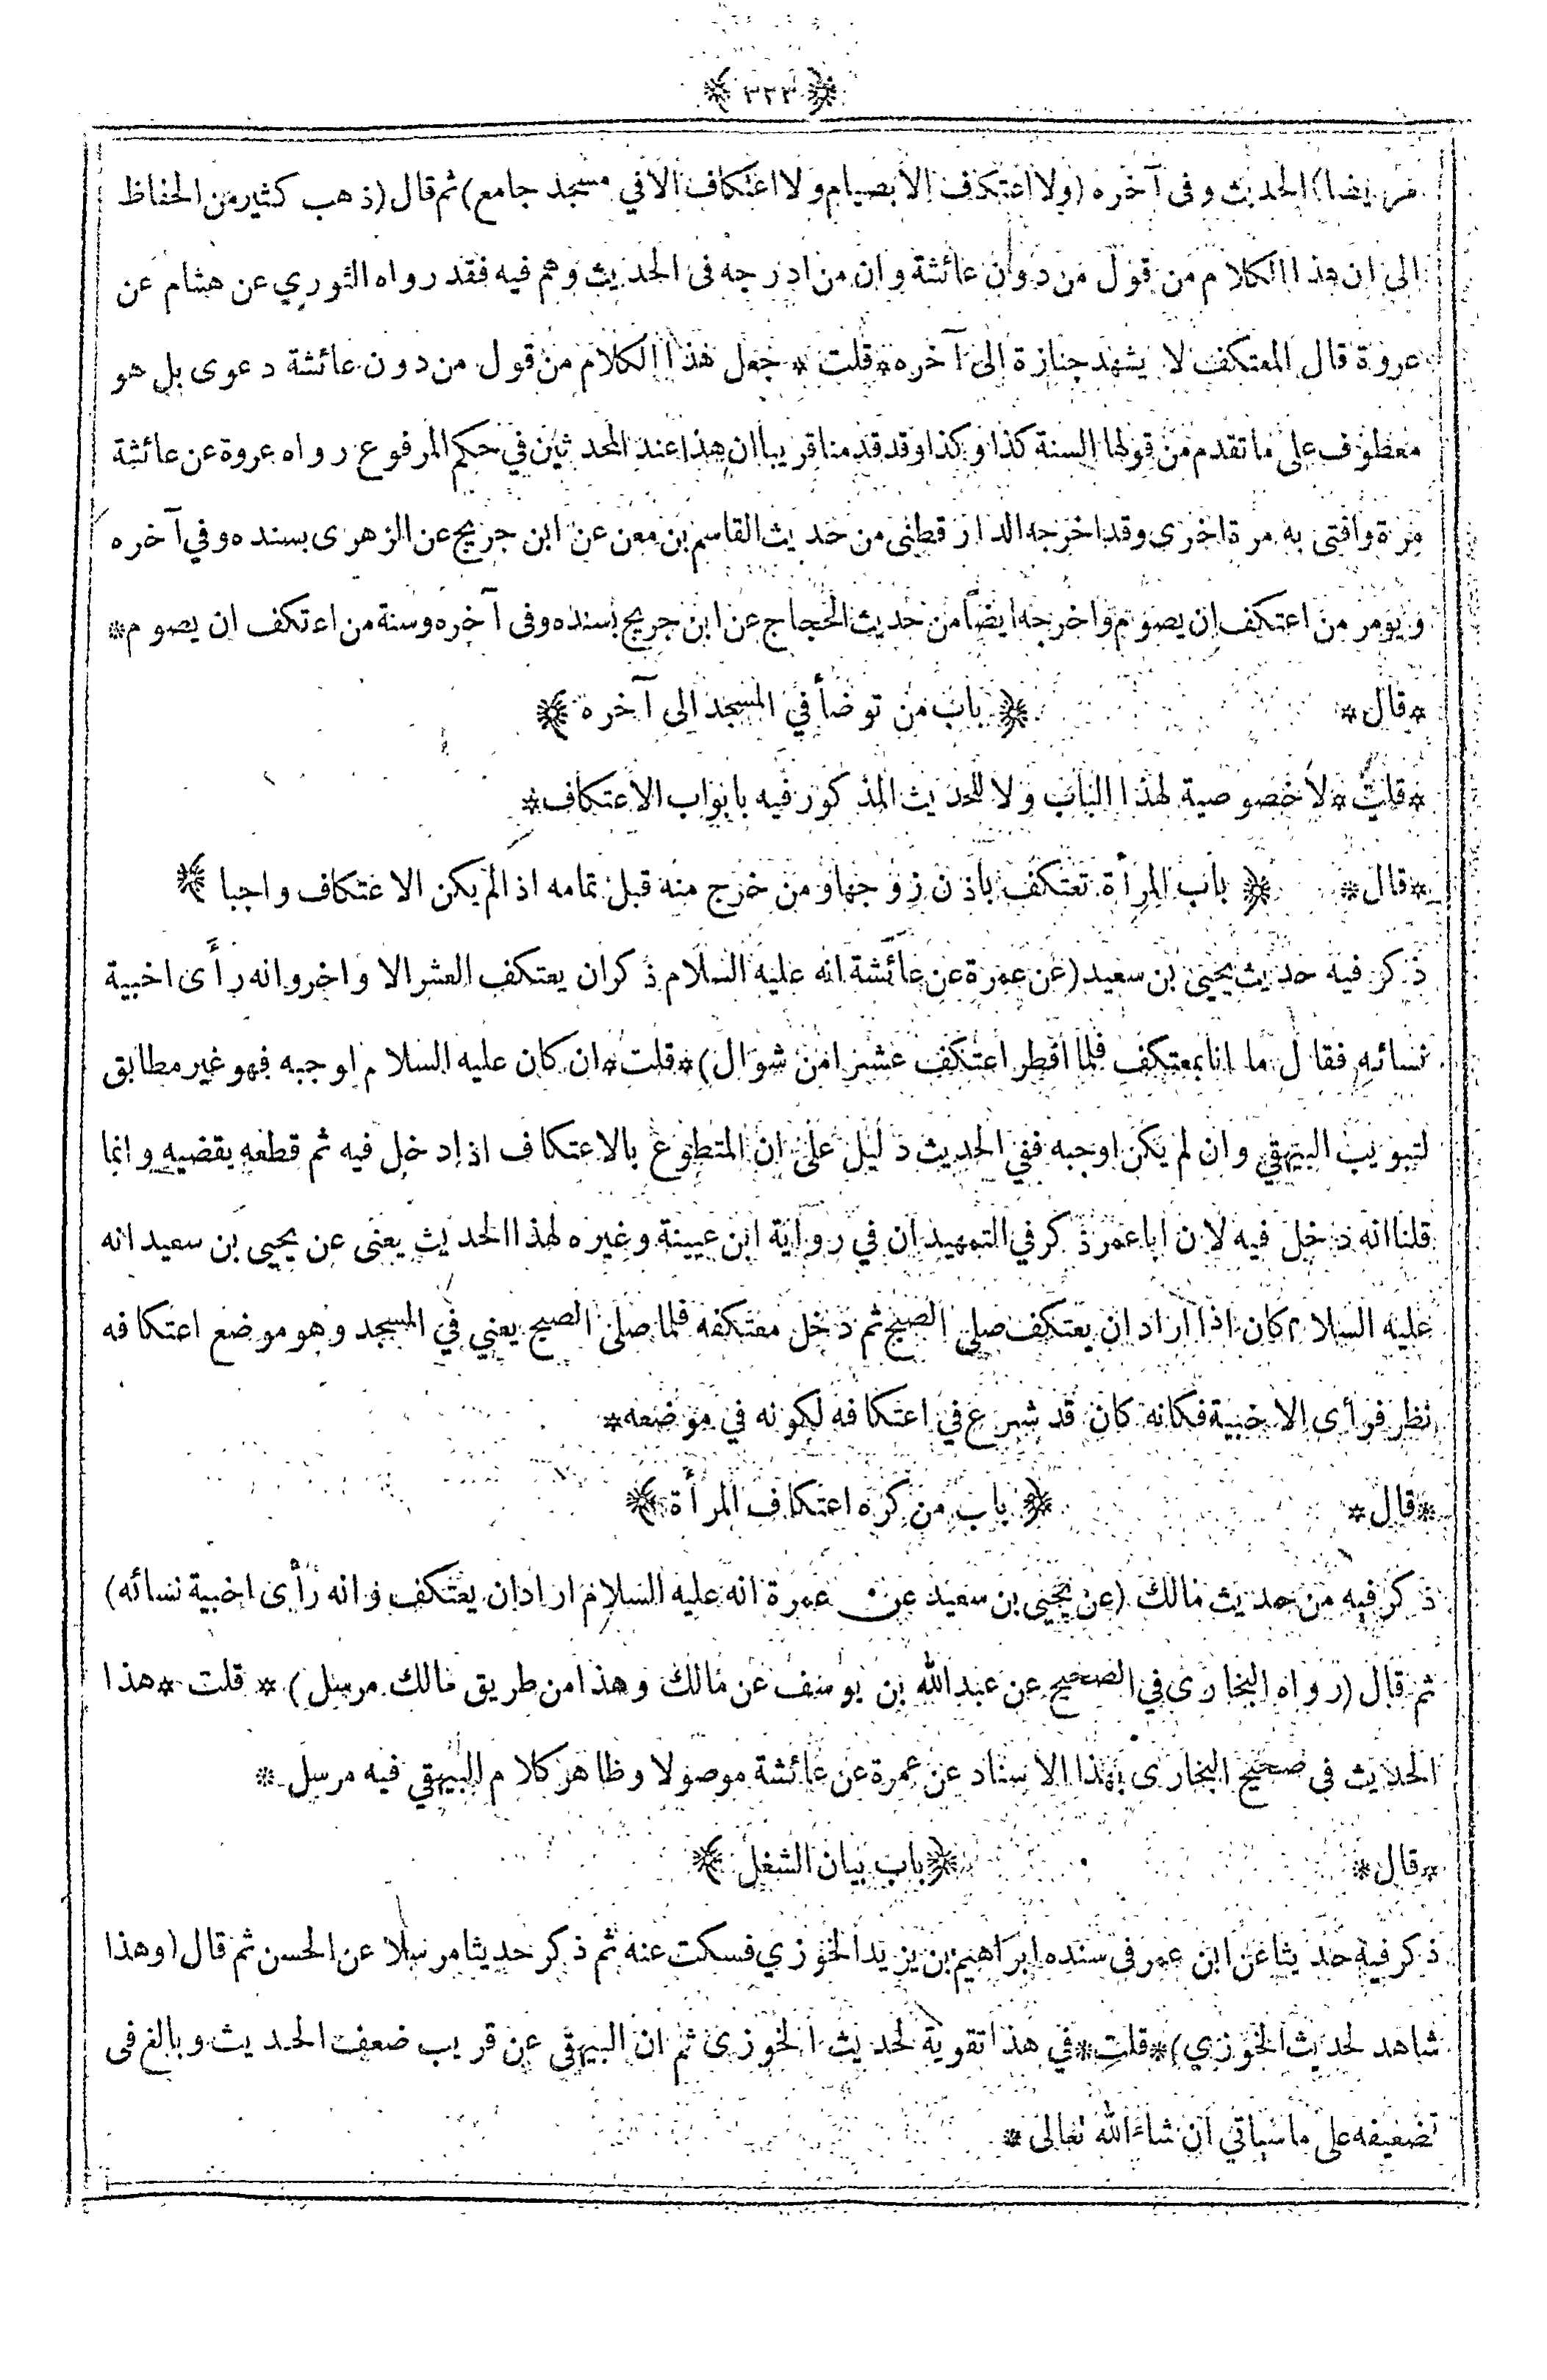 ﴿ ٣٢٣ ﴾
مريضا) الحديث وفى آخره (ولا اعتكف الا بصيام ولا اعتكاف الا في مسجد جامع) ثم قال (ذهب كثير من الحفاظ
الى ان هذا الكلام من قول من دون عائشة وان من ادرجه فى الحديث وهم فيه فقد رواه الثوري عن هشام عن
عروة قال المعتكف لا يشهد جنازة الى آخره * قلت * جعل هذا الكلام من قول من دون عائشة دعوى بل هو
معطوف على ما تقدم من قولها السنة كذا وكذا وقد قدمنا قريبا ان هذا عند المحدثين في حكم المرفوع رواه عروة عن عائشة
مرة وافتى به مرة اخرى وقد اخرجه الدارقطنى من حديث القاسم بن معن عن ابن جريج عن الزهرى بسنده وفي آخره
ويومر من اعتكف ان يصوم واخرجه ايضا من حديث الحجاج عن ابن جريج بسنده وفى آخره وسنة من اعتكف ان يصوم *
* قال * ﴿ باب من توضأ في المسجد الى آخره ﴾
* قلت * لا خصوصية لهذا الباب ولا للحديث المذكور فيه بابواب الاعتكاف *
* قال * ﴿ باب المرأة تعتكف باذن زوجها ومن خرج منه قبل تمامه اذا لم يكن الاعتكاف واجبا ﴾
ذكر فيه حديث يحيى بن سعيد (عن عمرة عن عائشة انه عليه السلام ذكر ان يعتكف العشر الاواخر وانه رأى اخبية
نسائه فقال ما انا بمعتكف فلما افطر اعتكف عشرا من شوال) * قلت * ان كان عليه السلام اوجبه فهو غير مطابق
لتبويب البيهقي وان لم يكن اوجبه ففي الحديث دليل على ان المتطوع بالاعتكاف اذا دخل فيه ثم قطعه يقضيه وانما
قلنا انه دخل فيه لان ابا عمر ذكر في التمهيد ان في رواية ابن عيينة وغيره لهذا الحديث يعنى عن يحيى بن سعيد انه
عليه السلام كان اذا اراد ان يعتكف صلى الصبح ثم دخل معتكفه فلما صلى الصبح يعني في المسجد وهو موضع اعتكافه
نظر فرأى الاخبية فكانه كان قد شرع في اعتكافه لكونه في موضعه *
* قال * ﴿ باب من كره اعتكاف المرأة ﴾
ذكر فيه من حديث مالك (عن يحيى بن سعيد عن عمرة انه عليه السلام اراد ان يعتكف وانه رأى اخبية نسائه)
ثم قال (رواه البخارى في الصحيح عن عبد الله بن يوسف عن مالك وهذا من طريق مالك مرسل) * قلت * هذا
الحديث فى صحيح البخارى بهذا الاسناد عن عمرة عن عائشة موصولا وظاهر كلام البيهقي فيه مرسل *
* قال * ﴿ باب بيان الشغل ﴾
ذكر فيه حديثا عن ابن عمر فى سنده ابراهيم بن يزيد الخوزي فسكت عنه ثم ذكر حديثا مرسلا عن الحسن ثم قال (وهذا
شاهد لحديث الخوزي) * قلت * في هذا تقوية لحديث الخوزى ثم ان البيهقى عن قريب ضعف الحديث وبالغ فى
تضعيفه على ما سياتي ان شاء الله تعالى *